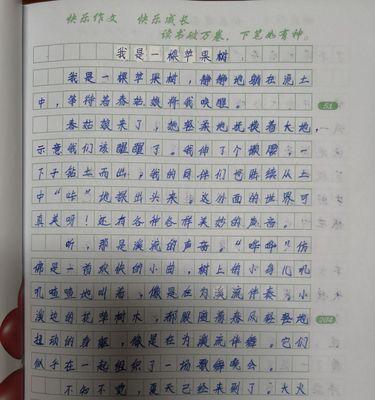 快乐作文 快乐成长
读书破万卷，下笔如有神。
我是一棵苹果树
我是一棵苹果树，静静地躺在泥土
中，等待着春姑娘将我唤醒。
51
春姑娘来了，她轻柔地抚摸着大地，
示意我们该醒醒了。我伸了个懒腰，一
下子钻土而出，我的同伴们也陆续从土
中“哗”地探出头来，这外面的世界可
真美呀！还有各种各样美妙的声音。
听，那是溪流的声音，“哗哗”仿
佛是一首欢快的小曲，树上的小鸟儿叽
叽喳喳地叫着，像是在为溪流伴奏，小
溪边的花草树木，都跟随着春风轻轻地
204
扭动的身躯，像是在为溪流伴舞。它们
似乎在一起组织了一场歌舞晚会。
不知不觉，夏天已经来到了，大火